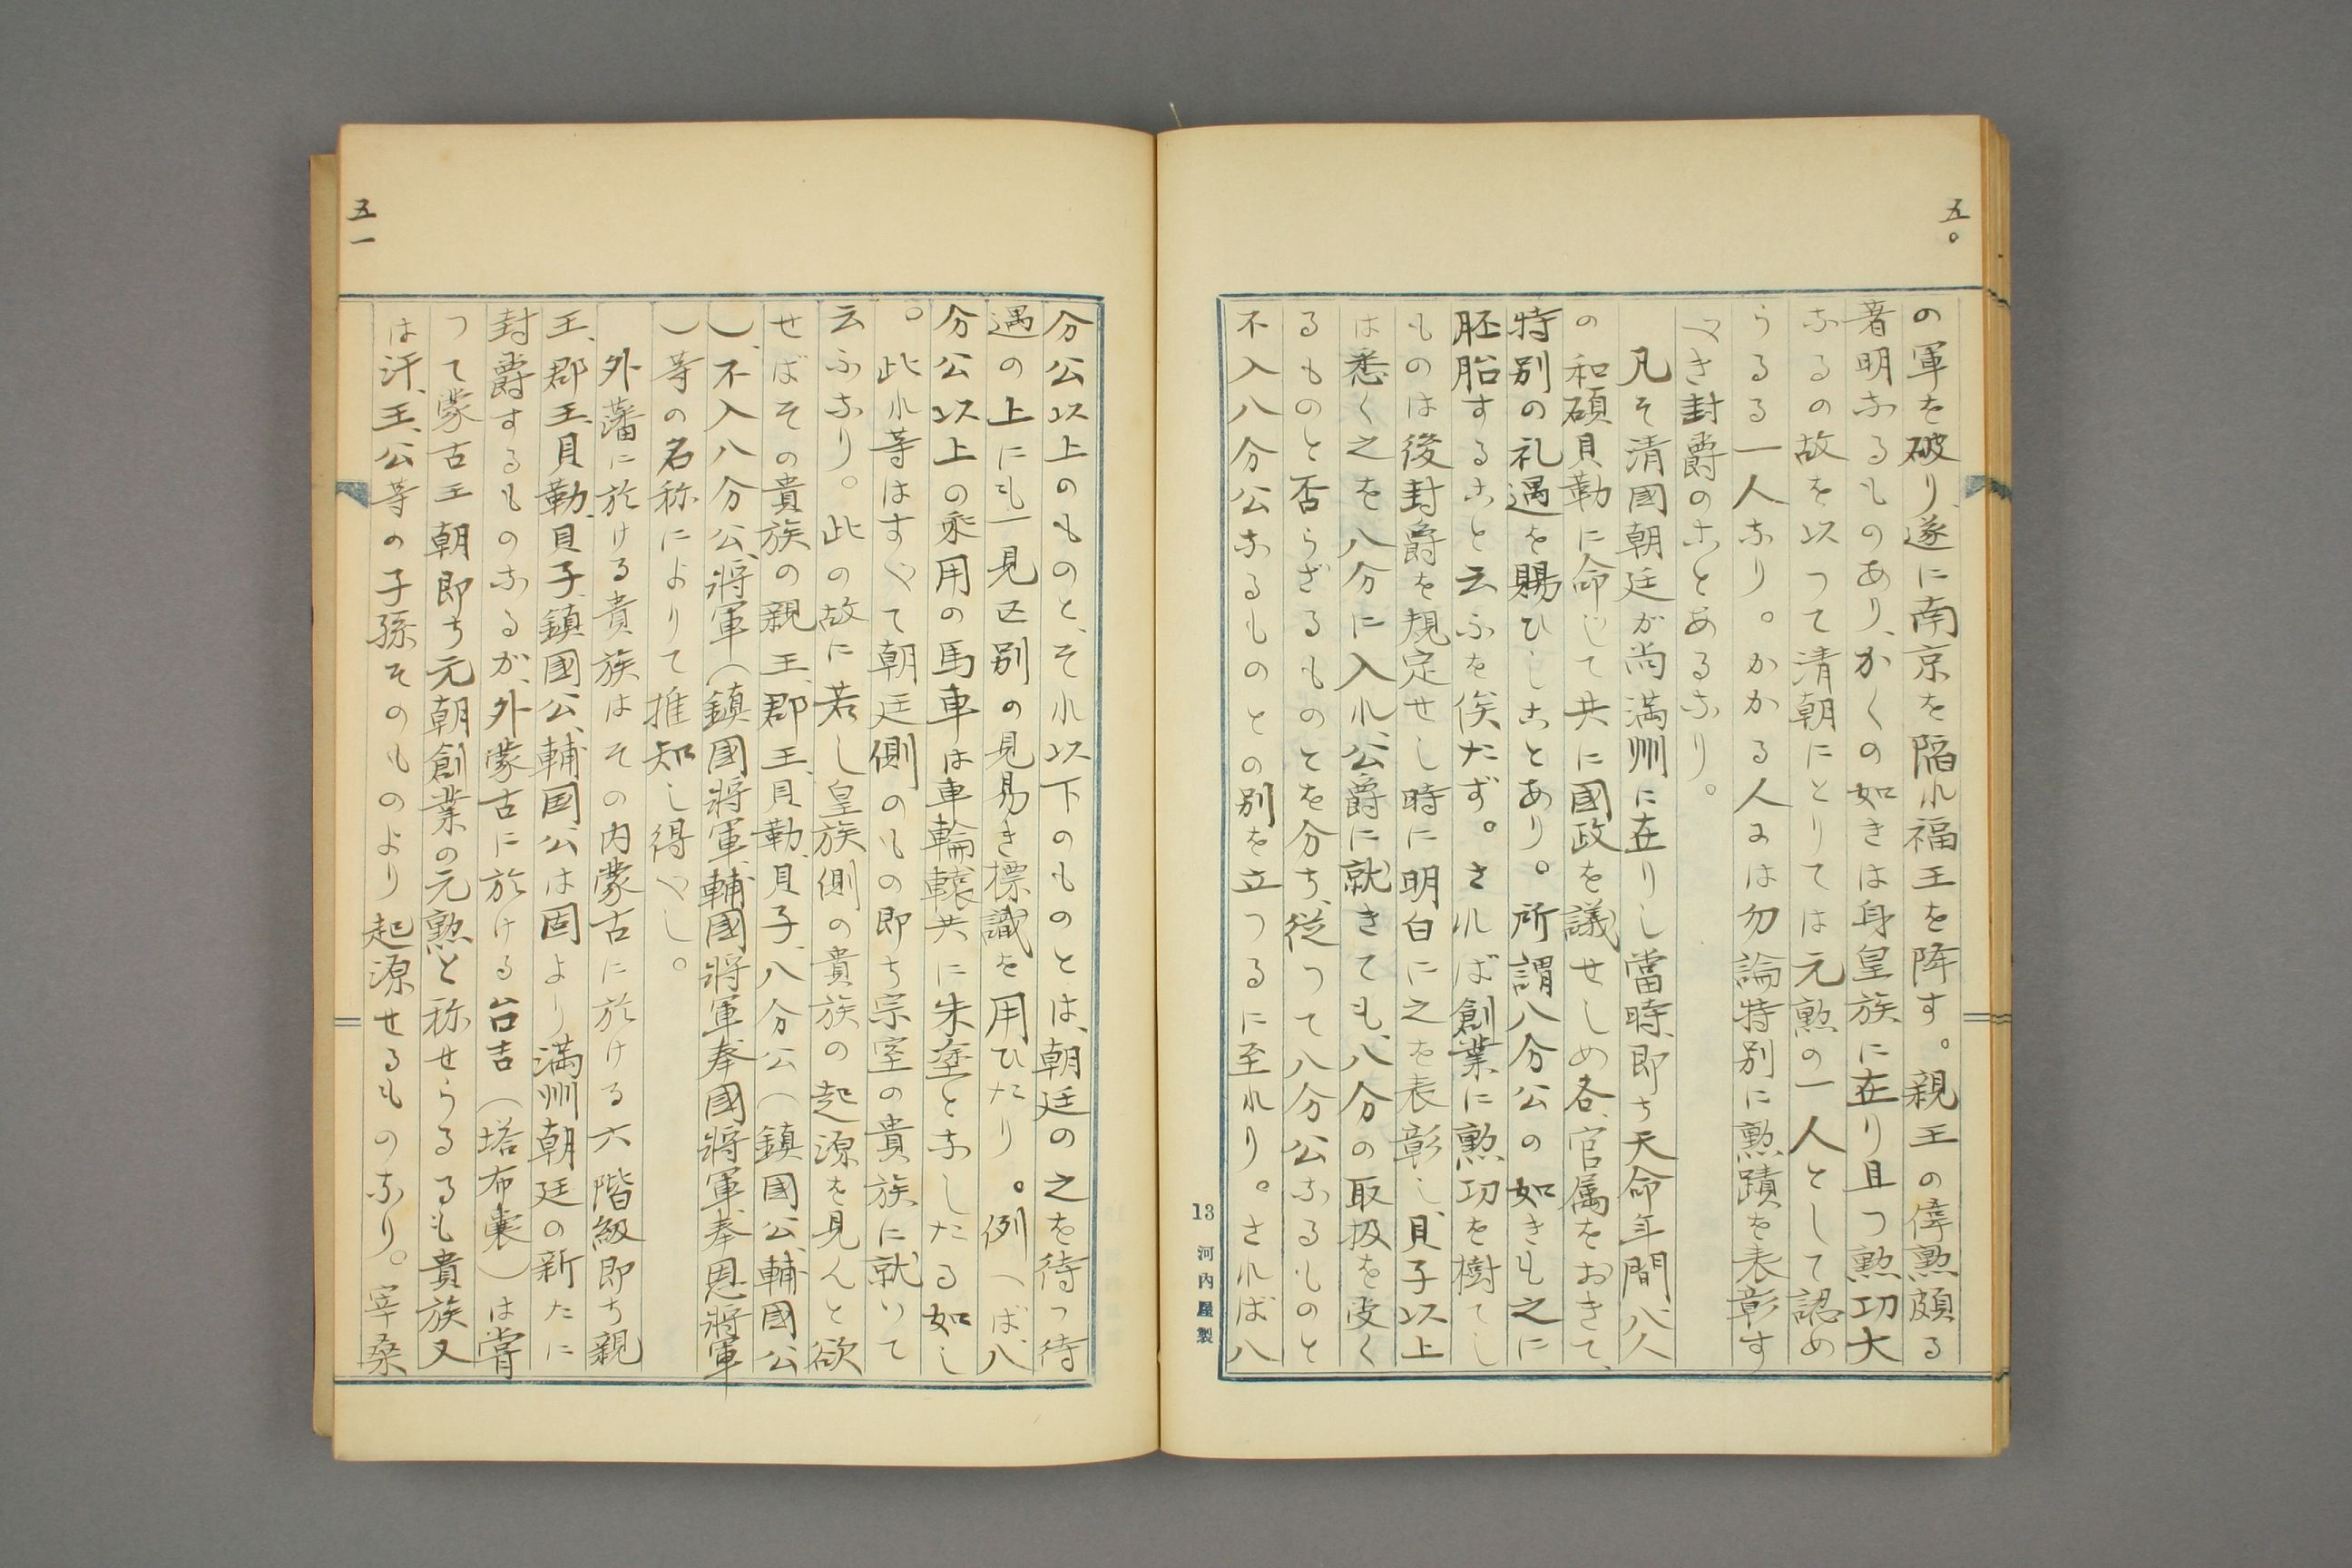 五〇
の軍を破り、遂に南京を陥れ福王を降す。親王の偉勲頗る
著明なるものあり、かくの如きは身皇族に在り且つ勲功大
なるの故を以つて清朝にとりては元勲の一人として認め
らるる一人なり。かかる人には勿論特別に勲蹟を表彰す
べき封爵のことあるなり。
凡そ清國朝廷が尚満州に在りし當時、即ち天命年間、八人
の和碩貝勒に命じて共に國政を議せしめ各、官属をおきて、
特別の礼遇を賜ひしことあり。所謂八分公の如きも之に
胚胎すること云ふを俟たず。されば創業に勲功を樹てし
ものは後封爵を規定せし時に明白に之を表彰し、貝子以上
は悉く之を八分に入れ、公爵に就きても、八分の取扱を受く
るものと否らざるものとを分ち、従つて八分公なるものと
不入八分公なるものとの別を立つるに至れり。されば八
13 河内屋製
五一
分公以上のものと、それ以下のものとは、朝廷の之を待つ待
遇の上にも一見区別の見易き標識を用ひたり。例へば、八
分公以上の乘用の馬車は車輪轅共に朱塗となしたる如し
。此れ等はすべて朝廷側のもの即ち宗室の貴族に就いて
云ふなり。此の故に若し皇族側の貴族の起源を見んと欲
せばその貴族の親王、郡王、貝勒、貝子、八分公（鎮國公、輔國公
）、不入八分公、將軍（鎮國將軍、輔國將軍、奉國將軍、奉恩將軍
）等の名称によりて推知し得べし。
外藩に於ける貴族はその内蒙古に於ける六階級即ち親
王、郡王、貝勒、貝子、鎮國公、輔国公は固より満州朝廷の新たに
封爵するものなるが、外蒙古に於ける台吉（塔布囊）は嘗
つて蒙古王朝即ち元朝創業の元勲と称せらるるも貴族又
は汗、王、公等の子孫そのものより起源せるものなり。宰桑